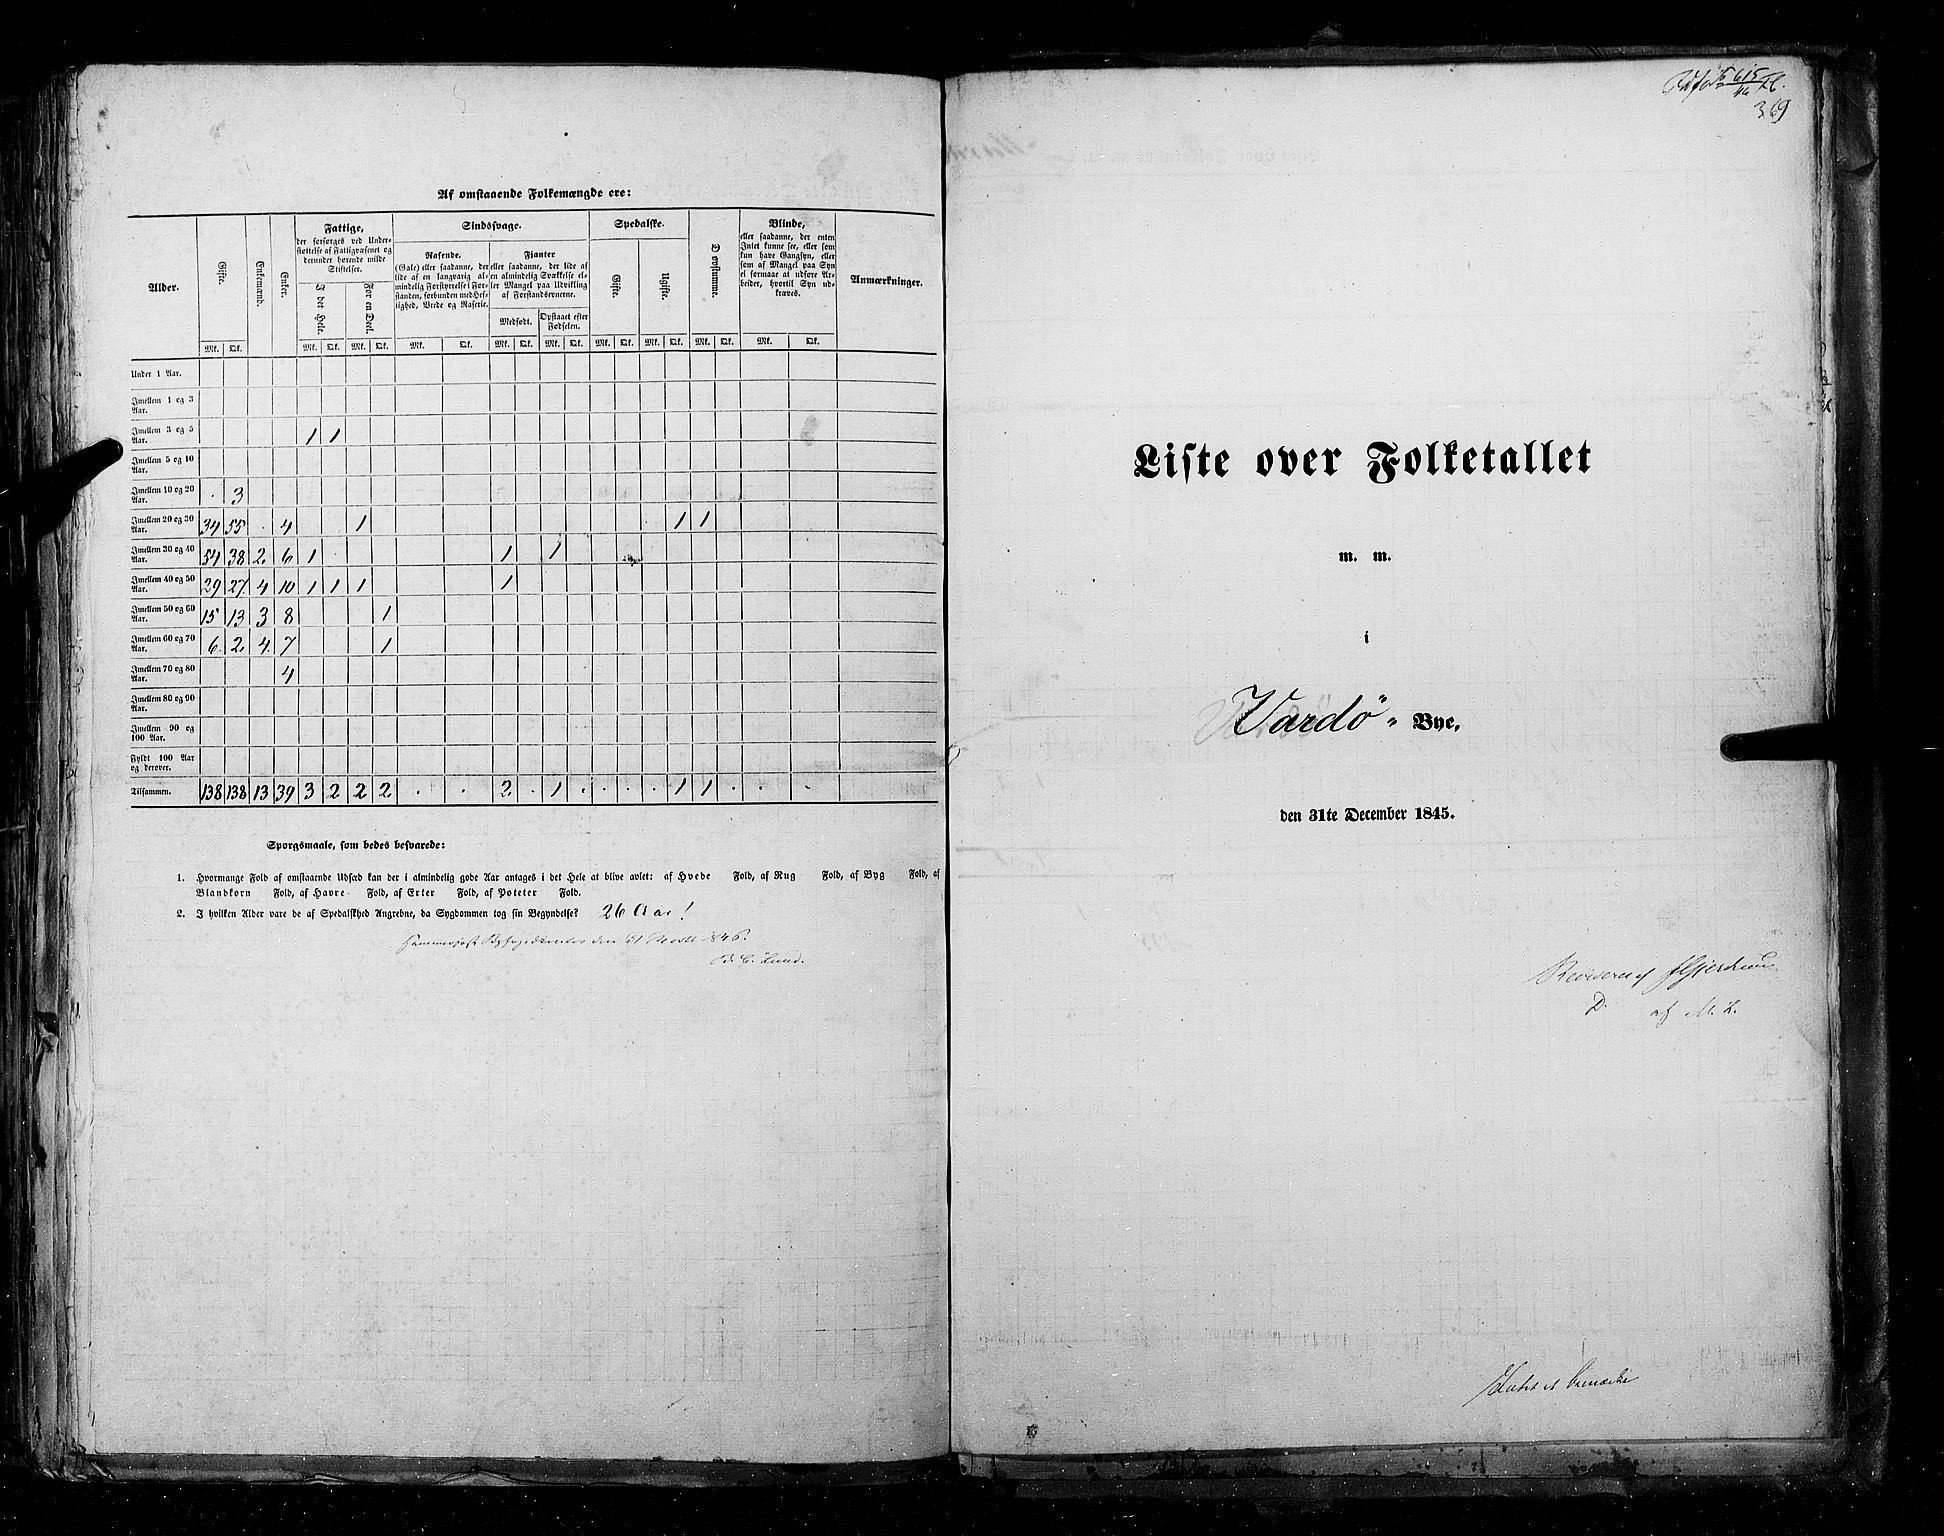 Af omstaaende Folkemængde ere:
Alder. Gifte. Enkemænd. Enker. Fattige, der forsørges ved Understøttelse af Fattigvæsenet og derunder hørende milde Stiftelser. Sindssvage. Spedalske. Døvstumme. Blinde, eller saadanne, der enten Intet kunne see, eller som kun have Gangsyn, eller som af Mangel paa Syn ei formaae at udføre Arbeider, hvortil Syn udkræves. Anmærkninger.
I det Hele. For en Deel. Rasende. (Gale) eller saadanne, der lide af en langvarig almindelig Forstyrrelse i Forstanden, forbunden med Heftighed, Vrede og Raserie. Fianter eller saadanne, der lide af en almindelig Svækkelse eller Mangel paa Udvikling af Forstandsevnerne. Gifte. Ugifte.
Medfødt. Opstaaet efter Fødselen.
Mk. Qk. Mk. Qk. Mk. Qk. Mk. Qk. Mk. Qk. Mk. Qk. Mk. Qk. Mk. Qk. Mk. Qk. Mk. Qk.
Under 1 Aar.
Imellem 1 og 3 Aar.
Imellem 3 og 5 Aar. 1 1
Imellem 5 og 10 Aar.
Imellem 10 og 20 Aar. . 3
Imellem 20 og 30 Aar. 34 55 . 4 1 1 1
Imellem 30 og 40 Aar. 54 38 2. 6 1 1 1
Imellem 40 og 50 Aar. 29 27. 4 10 1 1 1 1
Imellem 50 og 60 Aar. 15 13 3 8 1
Imellem 60 og 70 Aar. 6. 2. 4. 7 1
Imellem 70 og 80 Aar. 4
Imellem 80 og 90 Aar.
Imellem 90 og 100 Aar.
Fyldt 100 Aar og derover.
Tilsammen. 138 138 13 39 3 2 2 2. . . 2. . 1 . . . . 1 1 . . .
Spørgsmaale, som bedes besvarede:
1. Hvormange Fold af omstaaende Udsæd kan der i almindelig gode Aar antages i det Hele at blive avlet: af Hvede Fold, af Rug Fold, af Byg Fold, af
Blandkorn Fold, af Havre Fold, af Erter Fold, af Poteter Fold.
2. I hvilken Alder vare de af Spedalskhed Angrebne, da Sygdommen tog sin Begyndelse? 26 Aar!
Lund.
369
Liste over Folketallet
m. m.
i
Vardö" Bye.
den 31te December 1845.
Revideret af
D. af M. L.